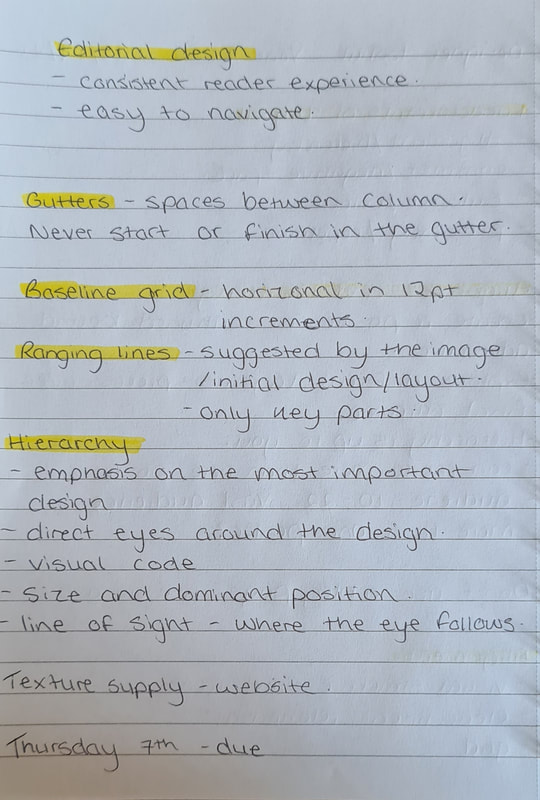 Editorial design
- consistent reader experience.
- easy to navigate.
Gutters - spaces between column.
Never start or finish in the gutter.
Baseline grid - horizonal in 12pt
increments.
Ranging lines - suggested by the image
/initial design/layout.
- only key parts.
Hierarchy
- emphasis on the most important
design
- direct eyes around the design.
- visual code
- size and dominant position.
- line of sight - where the eye follows.
Texture supply - website.
Thursday 7th - due